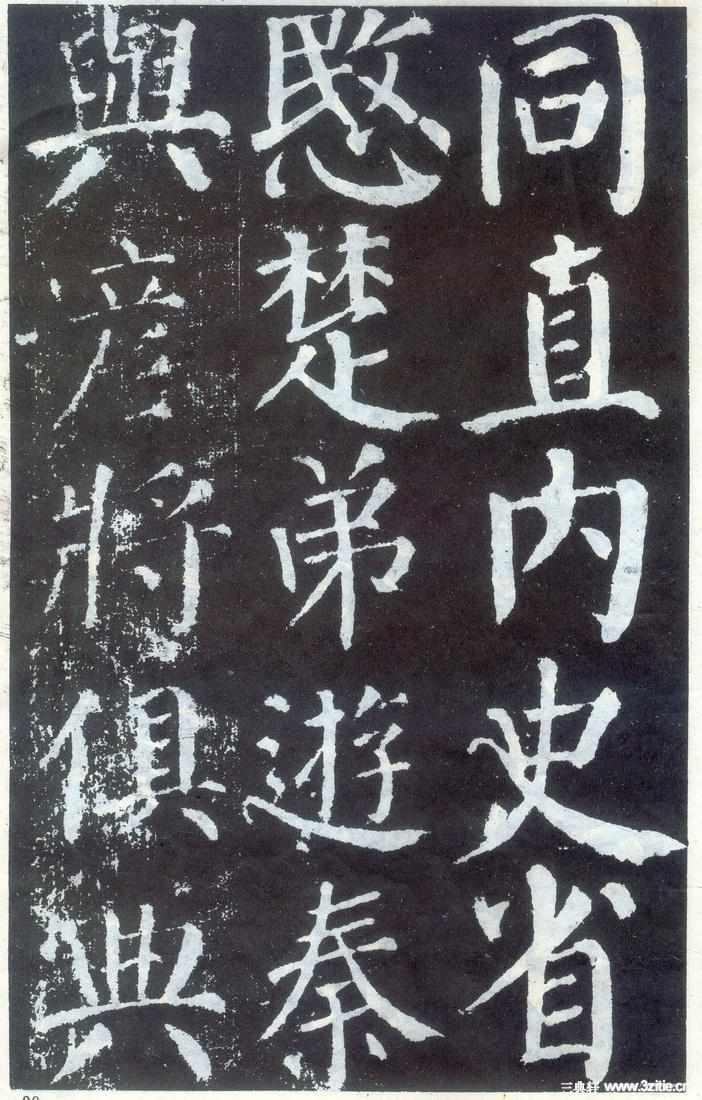 同直内史省
愍楚弟遊秦
與彦將俱典
三典轩 www.3zitie.cn